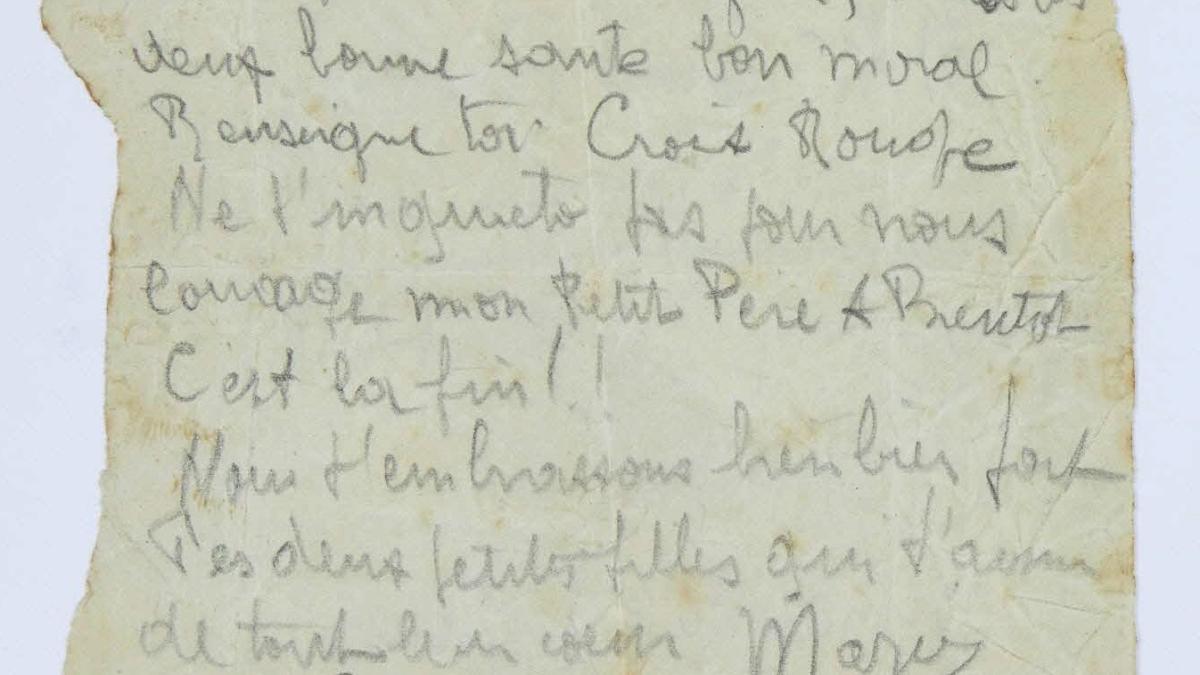 deux bonne sante bon moral.
Renseigne toi Croix Rouge
Ne t'inquiete pas pour nous
courage mon Petit Père A Bientot
C'est la fin!!
Nous t'embrassons bien bien fort
Tes deux petites filles qui t'aime
de tout leur coeur